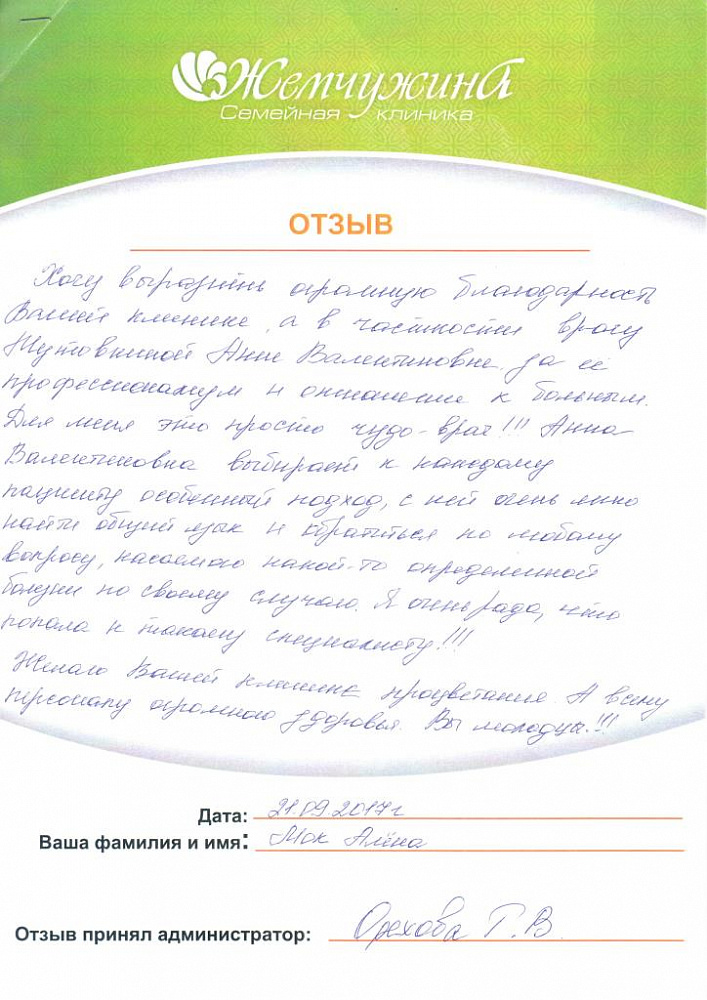 Жемчужина
Семейная клиника
ОТЗЫВ
Хочу выразить огромную благодарность
Вашей клинике, а в частности врачу
Анне Валентиновне за её
профессионализм и отношение к больным.
Для меня это просто чудо-врач!!! Анна
Валентиновна выбирает к каждому
пациенту особенный подход, с ней очень
найти общий язык и обратиться по любому
вопросу, касаемого какой-то определённой
болезни по своему случаю. Я очень рада, что
попала к такому специалисту!!!
Желаю Вашей клинике процветания. А всему
персоналу огромного здоровья. Вы молодцы!!!
Дата: 21.09.2017г
Ваша фамилия и имя: Мок Алёна
Отзыв принял администратор: Орехова Г.В.